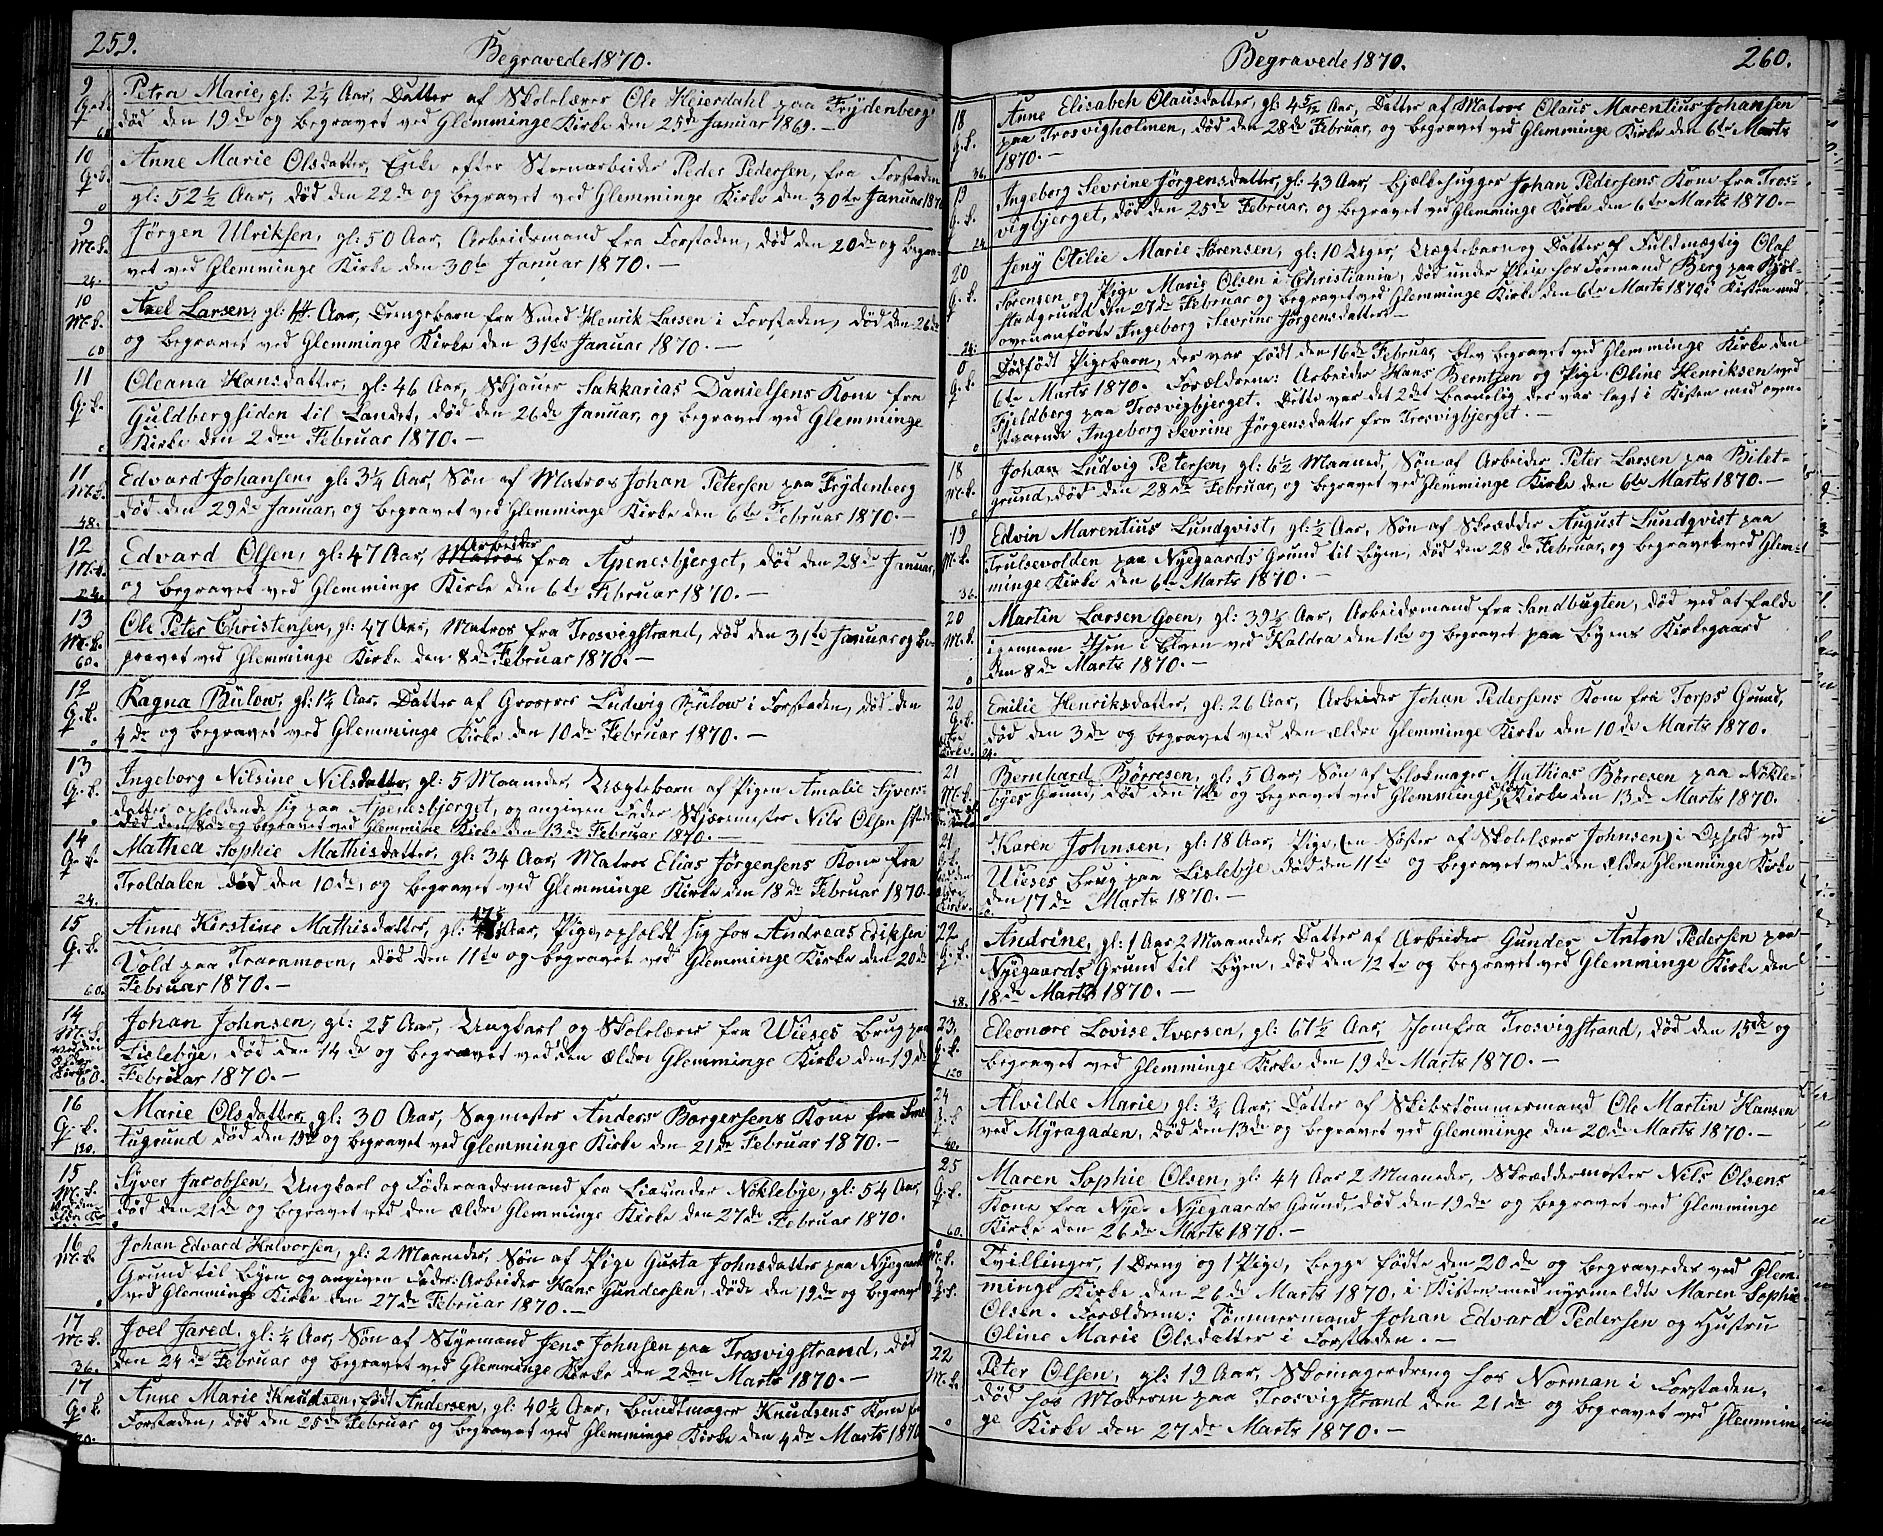 259.
Begravede 1870.
9
Q. k.
60
Petra Marie, gl: 2 1/4 Aar, Datter af Skolelærer Ole Heierdahl paa Frydenberg
død den 19de og begravet ved Glemminge Kirke den 25de Januar 1869. —
10
Q. k.
0
Anne Marie Olsdatter, Enke efter Steenarbeider Peder Pedersen, fra Forstaden
gl: 52 1/2 Aar, død den 22de og begravet ved Glemminge Kirke den 30te Januar 1870
9
M. k.
24.
Jørgen Ulriksen, gl: 50 Aar, Arbeidsmand fra Forstaden, død den 20de og begra-
vet ved Glemminge Kirke den 30te Januar 1870. —
10
M. k.
60
Axel Larsen, gl: Aar, Drengebarn fra Smed Henrik Larsen i Forstaden, død den 26de
og begravet ved Glemminge Kirke den 31te Januar 1870. —
11
Q. k.
0
Oleana Hansdatter, gl: 46 Aar, Skjauer Sakkarias Danielsens Kone fra
Guldbergsiden til Landet, død den 26de Januar, og begravet ved Glemminge
Kirke den 2den Februar 1870. —
11
M. k.
48.
Edvard Johansen, gl: 3 1/4 Aar, Søn af Matros Johan Petersen paa Frydenberg
død den 29de Januar, og begravet ved Glemminge Kirke den 6te Februar 1870. —
12
M. k.
24.
Edvard Olsen, gl: 47 Aar, Matros Arbeider fra Apenesbjerget, død den 28de Januar,
og begravet ved Glemminge Kirke den 6te Februar 1870. —
13
M. k.
60.
Ole Peter Christensen, gl: 47 Aar, Matros fra Trosvigstrand, død den 31te Januar og be-
gravet ved Glemminge Kirke den 8de Februar 1870. —
12
Q. k.
0
Ragna Bülow, gl: 1 1/4 Aar, Datter af Grosserer Ludvig Bülow i Forstaden, død den
4de og begravet ved Glemminge Kirke den 10de Februar 1870. —
13
Q. k.
0
Ingeborg Nilsine Nilsdatter, gl: 5 Maaneder, Uægtebarn af Pigen Amalie Syvers-
datter opholdende sig paa Apenesbjerget, og angiven Fader Skjærmester Nils Olsen
død den 8de og begravet ved Glemminge Kirke den 13de Februar 1870. —
14
Q. k.
24.
Mathea Sophie Mathisdatter, gl: 34 Aar, Matros Elias Jørgensens Kone fra
Troldalen død den 10de, og begravet ved Glemminge Kirke den 18de Februar 1870.
15
Q. k.
60.
Anne Kirstine Mathisdatter, gl: Aar, Pige, opholdt sig hos Andreas Eriksen
Vold paa Traranmoen, død den 11te og begravet ved Glemminge Kirke den 20de
Februar 1870. —
14
M. k.
ved den
ældre
Kirke
60.
Johan Johnsen, gl: 25 Aar, Ungkarl og Skolelærer fra Wieses Brug paa
Lislebye, død den 14de og begravet ved den ældre Glemminge Kirke den 19de
Februar 1870. —
16
Q. k.
120.
Marie Olsdatter, gl: 30 Aar, Sagmester Anders Borgersens Kone fra Sme-
tugrund død den 13de og begravet ved Glemminge Kirke den 21de Februar 1870. —
15
M. k.
Syver Jacobsen, Ungkarl og Føderaadsmand fra Lisunder Nøklebye, gl: 54 Aar,
død den 21de og begravet ved den ældre Glemminge Kirke den 27de Februar 1870.
16
M. k.
0
Johan Edvard Halvorsen, gl: 2 Maaneder, Søn af Pige Gusta Johnsdatter paa Nyegaards
Grund til Byen og angiven Fader: Arbeider Hans Gundersen, døde den 19de og begravet
ved Glemminge Kirke den 27de Februar 1870. —
17
M. k.
36.
Joel Jared, gl: 1/4 Aar, Søn af Styrmand Jens Johnsen paa Trosvigstrand, død
den 24de Februar og begravet ved Glemminge Kirke den 2den Marts 1870. —
17
Q. k.
Anne Marie Knudsen, født Andersen, gl: 40 1/2 Aar, Bundtmager Knudsens Kone fra
Forstaden, død den 25de Februar og begravet ved Glemminge Kirke den 4de Marts 1870
Begravede 1870.
260.
18
Q. k.
36.
Anne Elisabeh Olausdatter, gl: 4 5/12 Aar, Datter af Matros Olaus Marentius Johansen
paa Trosvigholmen, død den 28de Februar, og begravet ved Glemminge Kirke den 6te Marts
1870. —
19
Q. k.
24.
Ingeborg Sevrine Jørgensdatter, gl: 43 Aar, Bjælkehugger Johan Pedersens Kone fra Tros-
vigbjerget, død den 25de Februar, og begravet ved Glemminge Kirke den 6te Marts 1870. —
20
Q. k.
24.
Jeny Otilie Marie Sørensen, gl: 10 Uger, Uægtebarn og Datter af Fuldmægtig Olaf
Sørensen og Pige Marie Olsen i Christiania, død under Pleie hos Formand Berg paa Kjøl-
stadgrund den 27de Februar og begravet ved Glemminge Kirke den 6te Marts 1870 i Kisten med
ovenanførte Ingeborg Sevrine Jørgensdatter. —
0
Q. k.
0
Dødfødt Pigebarn, der var født den 16de Februar, blev begravet ved Glemminge Kirke den
6te Marts 1870. Forældrene: Arbeider Hans Berntsen og Pige Oline Henriksen ved
Fjeldberg paa Trosvigbjerget. Dette var det 2det Barnelig der var lagt i Kisten med oven-
staaende Ingeborg Sevrine Jørgensdatter fra Trosvigbjerget. —
18
M. k.
Johan Ludvig Petersen, gl: 6 1/2 Maaned, Søn af Arbeider Peter Larsen paa Bilet-
grund, død den 28de Februar, og begravet ved Glemminge Kirke den 6te Marts 1870. —
19
M. k.
36.
Edvin Marentius Lundqvist, gl: 1/2 Aar, Søn af Skrædder August Lundqvist paa
Trulsevolden paa Nyegaards Grund til Byen, død den 28de Februar, og begravet ved Glem-
minge Kirke den 6te Marts 1870. —
20
M. k.
0
Martin Larsen Goen, gl: 39 1/2 Aar, Arbeidsmand fra Sandbugten, død ved at falde
igennem Isen i Elven ved Kaldra den 1te og begravet paa Byens Kirkegaard
den 8de Marts 1870. —
20
Q. k.
24.
Emilie Henriksdatter, gl: 26 Aar, Arbeider Johan Pedersens Kone fra Torps Grund,
død den 3de og begravet ved den ældre Glemminge Kirke den 10de Marts 1870.
21
M. k.
0
Bernhard Børresen, gl: 5 Aar, Søn af Blokmager Mathias Børresen paa Nøkle-
byes Grund, død den 7de og begravet ved Glemminge Kirke den 13de Marts 1870.
21
Q. k.
ved den
ældre
Kirke.
Karen Johnsen, gl: 18 Aar, Pige (en Søster af Skolelærer Johnsen) i Ophold ved
Wieses Brug paa Lislebye død den 11te og begravet ved den ældre Glemminge Kirke
den 17de Marts 1870. —
22
Q. k.
48.
Andrine, gl: 1 Aar 2 Maaneder, Datter af Arbeider Gunder Anton Pedersen paa
Nyegaards Grund til Byen, død den 12te og begravet ved Glemminge Kirke den
18de Marts 1870. —
23.
Q. k.
120
Eleonore Lovise Iversen, gl: 67 1/2 Aar, Jomfra Trosvigstrand, død den 15de og
begravet ved Glemminge Kirke den 19de Marts 1870. —
24
Q. k.
40.
Alvilde Marie, gl: 3/4 Aar, Datter af Skibstømmermand Ole Martin Hansen
ved Myragaden, død den 13de og begravet ved Glemminge den 20de Marts 1870. —
25
Q. k.
60.
Maren Sophie Olsen, gl: 44 Aar 2 Maaneder, Skræddermester Nils Olsens
Kone fra Nyes Nyegaards Grund, død den 19de og begravet ved Glemminge
Kirke den 26de Marts 1870. —
0
M. k.
Q. k.
Tvillinger, 1 Dreng og 1 Pige, begge fødte den 20de og begravedes ved Glem-
minge Kirke den 26de Marts 1870, i Kisten med nysmeldte Maren Sophie
Olsen. Forældrene: Tømmermand Johan Edvard Pedersen og Hustru
Oline Marie Olsdatter i Forstaden. —
22
M. k.
0
Peter Olsen, gl: 19 Aar, Skomagerdreng hos Norman i Forstaden,
død hos Moderen paa Trosvigstrand den 21de og begravet ved Glemmin-
ge Kirke den 27de Marts 1870. —